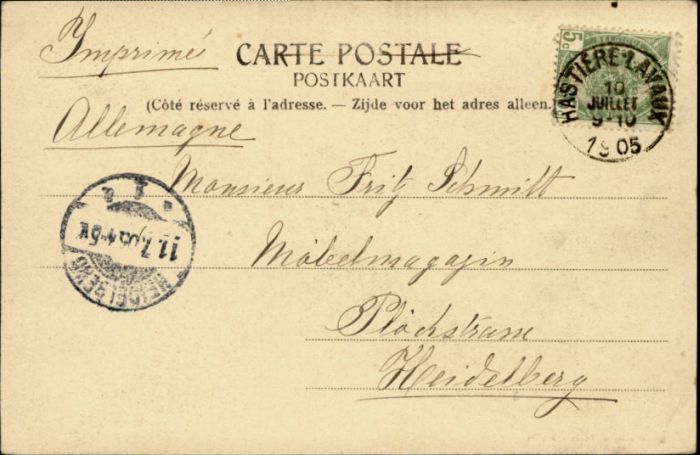 Imprimé
CARTE POSTALE
POSTKAART
(Côté réservé à l'adresse. — Zijde voor het adres alleen.)
Allemagne
Monsieur Fritz Schmitt
Möbelmagazin
Plöckstrasse
Heidelberg
5c
HASTIÈRE-LAVAUX
10
JUILLET
9-10
1905
HEIDELBERG
11.7.05.